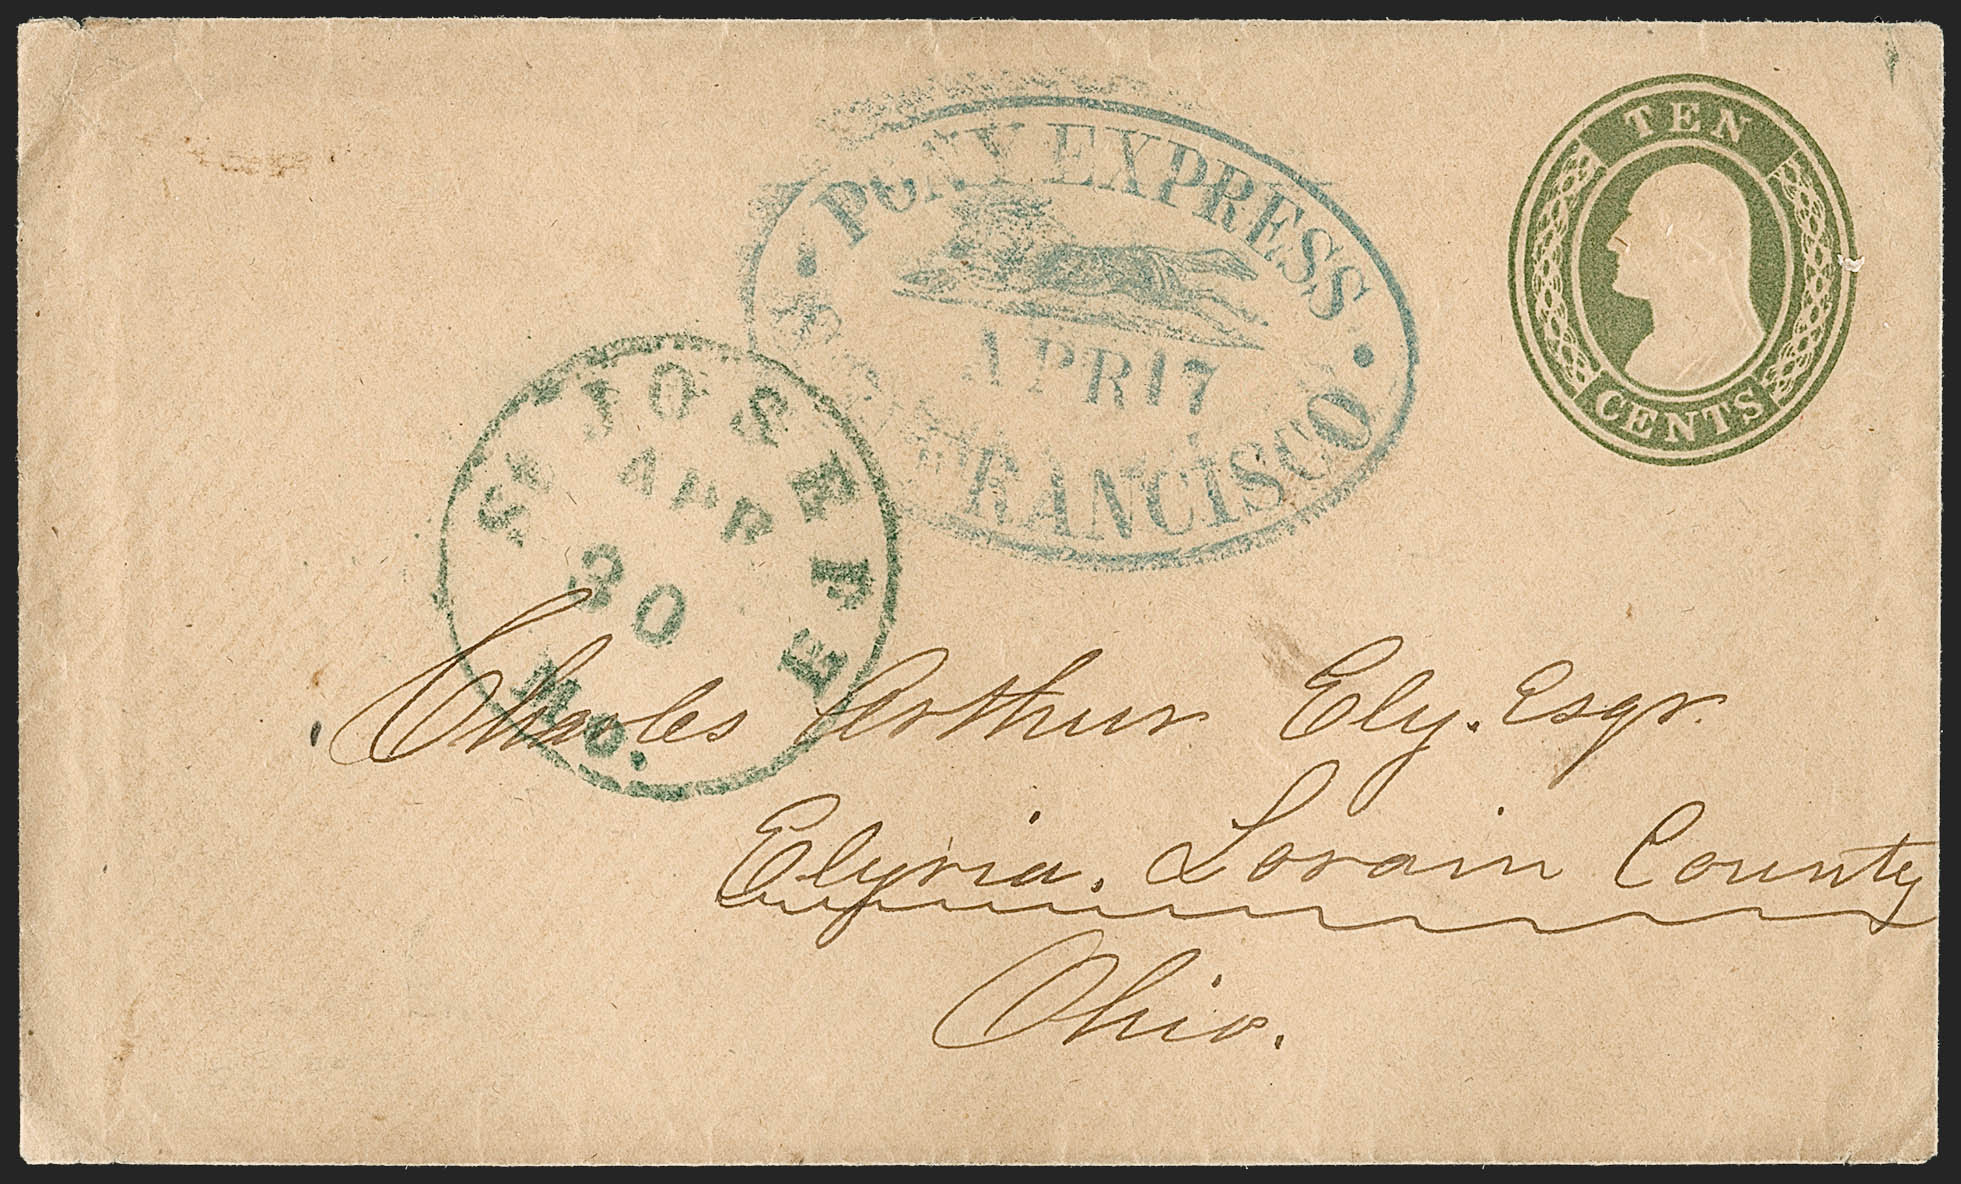 TEN
CENTS
PONY EXPRESS
APR 17
SAN FRANCISCO
ST JOSEPH
APR
30
Mo.
Charles Arthur Ely. Esqr.
Elyria. Lorain County
Ohio.